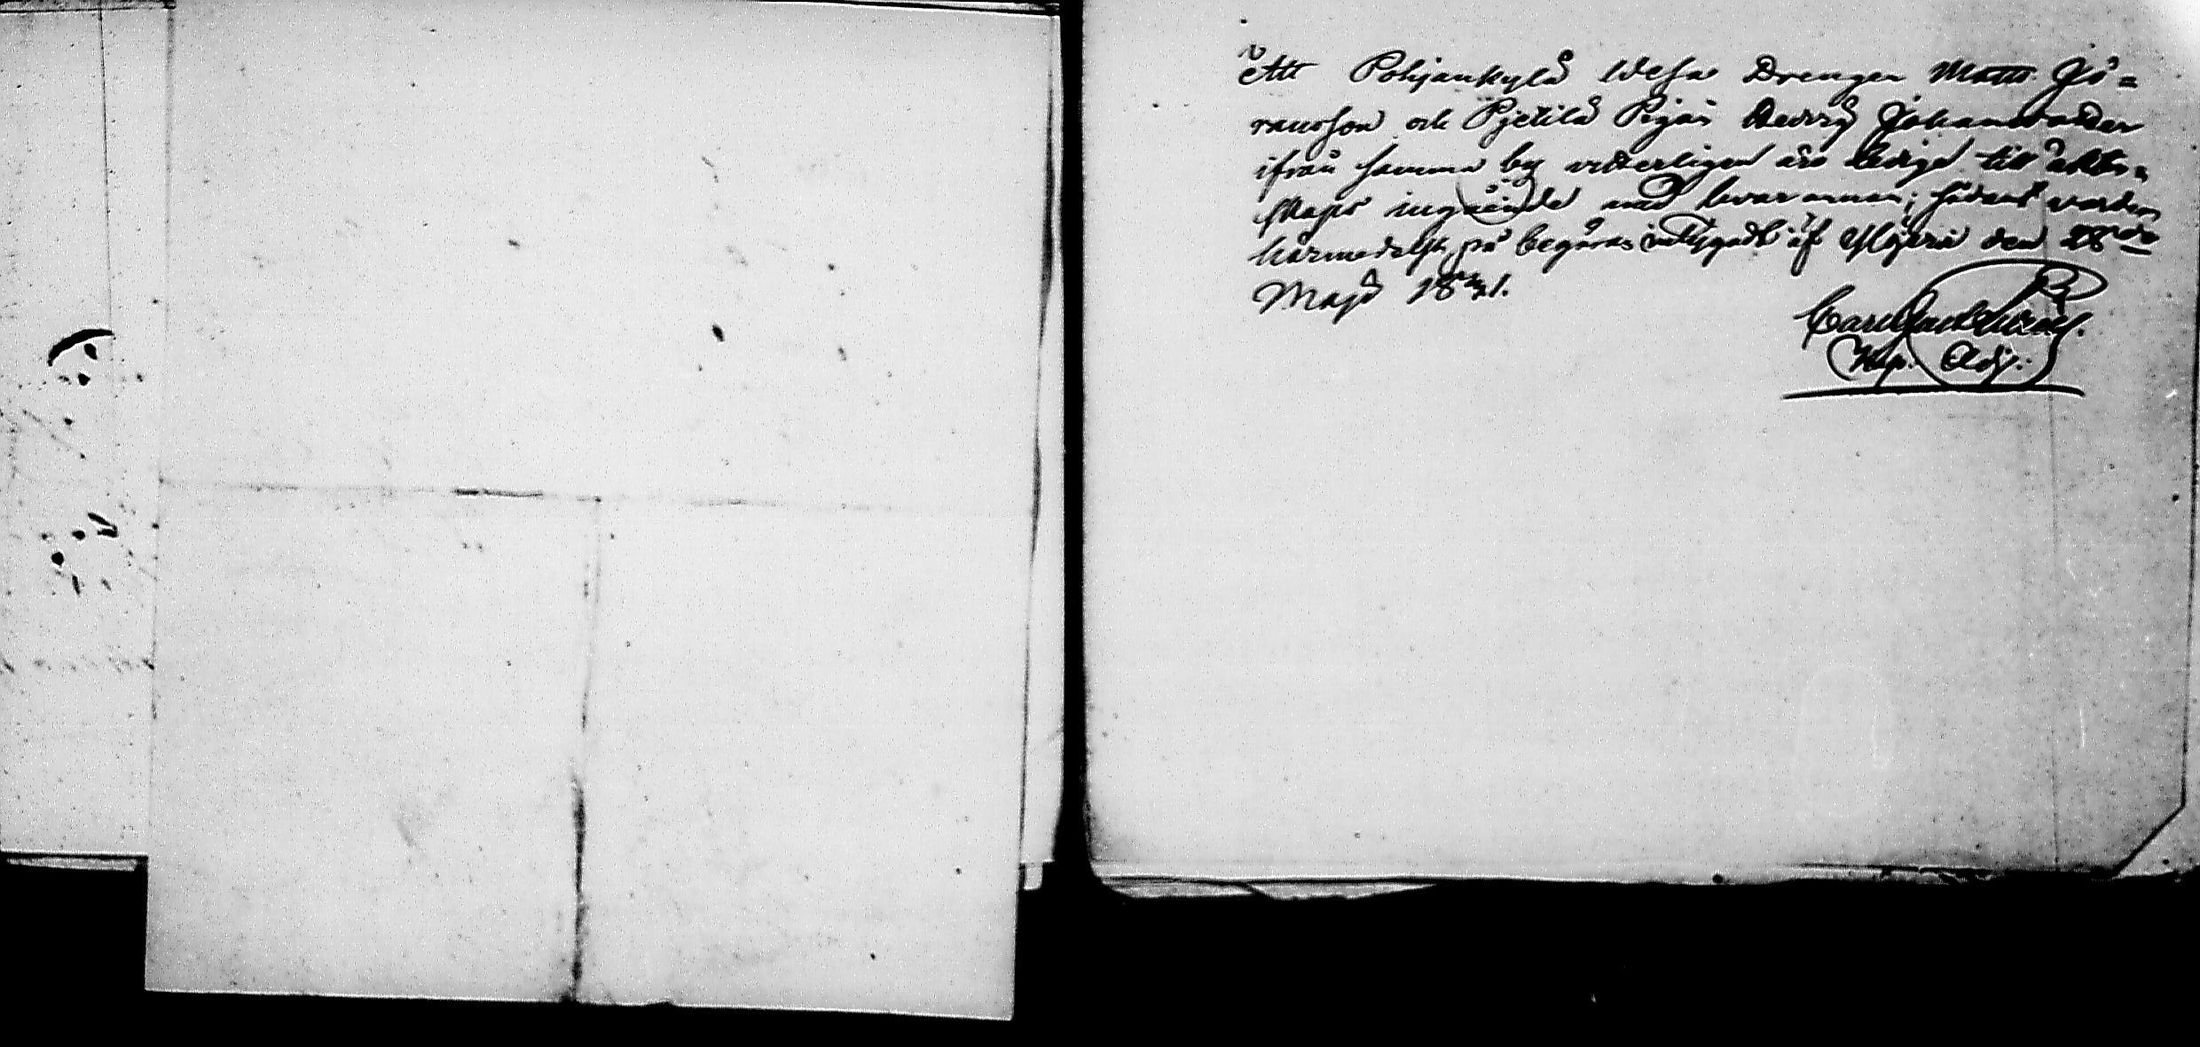 Att Pohjankylä Drengen Matts Jö=
ransson och Pjetilä Pigan Johansdotter
ifrån samma by vitterligen äro ledige till äkten=
skaps ingående med hvarannan; sådant varder
härmedelst på begäran intygadt af den 28
Maji 18
Carl
Kap. Adj: